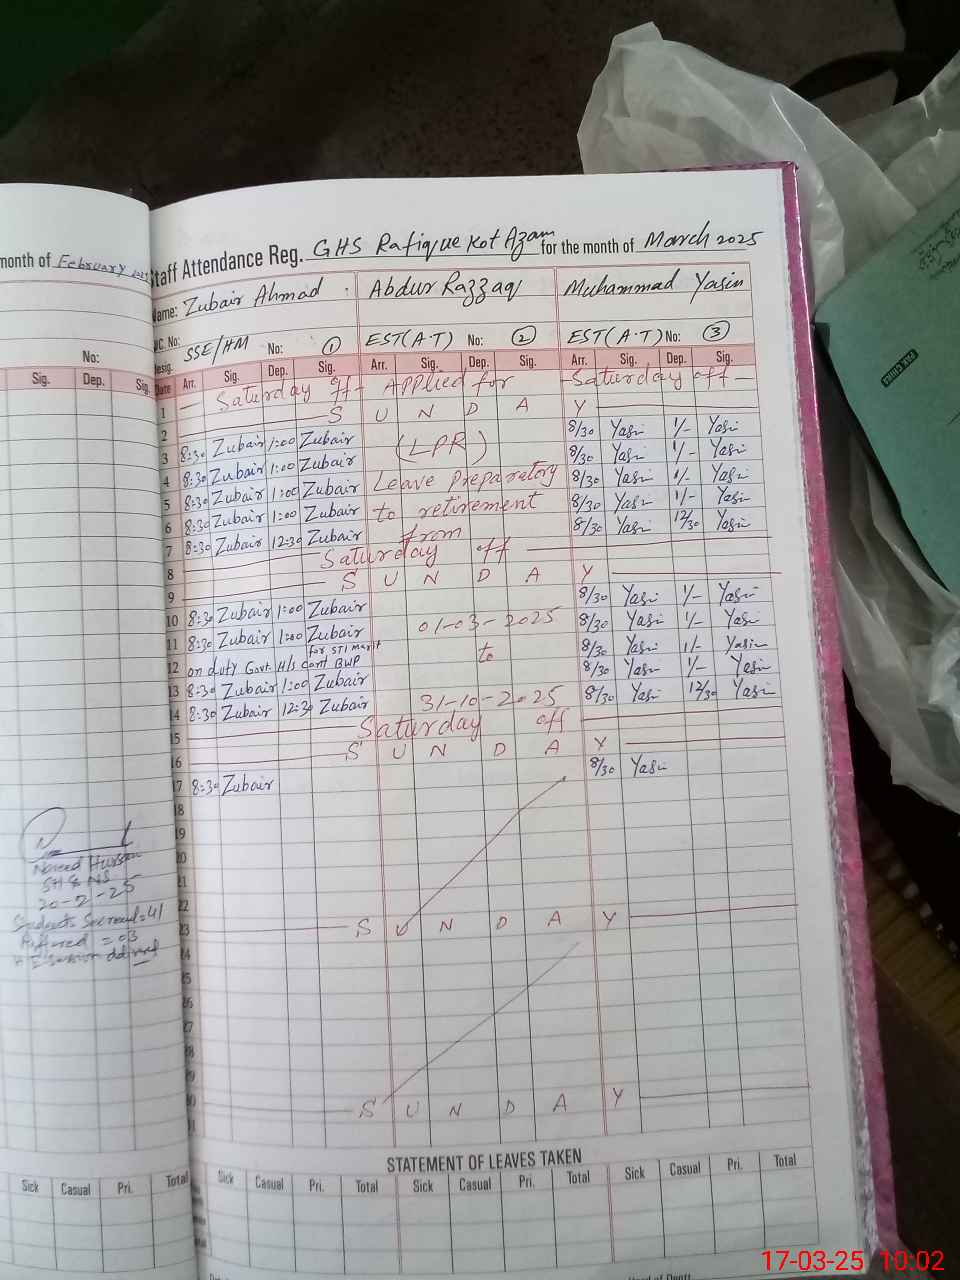 month of February 2025
No:
Sig. Dep. Sig.
Staff Attendance Reg. GHS Rafique Kot Azam for the month of March 2025
Name: Zubair Ahmad Abdur Razzaq Muhammad Yasin
SSE/HM No: 1 EST(A.T) No: 2 EST(A.T) No: 3
Desig.
Date Arr. Sig. Dep. Sig. Arr. Sig. Dep. Sig. Arr. Sig. Dep. Sig.
1 Saturday off Applied for Saturday off
2 S U N D A Y
3 8:30 Zubair 1:00 Zubair (LPR) 8/30 Yasin 1/- Yasin
4 8:30 Zubair 1:00 Zubair 8/30 Yasin 1/- Yasin
5 8:30 Zubair 1:00 Zubair Leave Preparatory 8/30 Yasin 1/- Yasin
6 8:30 Zubair 1:00 Zubair to retirement 8/30 Yasin 1/- Yasin
7 8:30 Zubair 12:30 Zubair from 8/30 Yasin 12/30 Yasin
8 Saturday off
9 S U N D A Y
10 8:30 Zubair 1:00 Zubair 8/30 Yasin 1/- Yasin
11 8:30 Zubair 1:00 Zubair 01-03-2025 8/30 Yasin 1/- Yasin
for STI Marit
12 on duty Govt. H/s cant BWP to 8/30 Yasin 1/- Yasin
13 8:30 Zubair 1:00 Zubair 8/30 Yasin 1/- Yasin
14 8:30 Zubair 12:30 Zubair 31-10-2025 8/30 Yasin 12/30 Yasin
15 Saturday off
16 S U N D A Y
17 8:30 Zubair 8/30 Yasin
18
19
20
21
22
23 S U N D A Y
24
25
26
27
28
29
30 S U N D A Y
31
Naveed Hussain
SH & NS
20-2-25
Students Screened = 41
Reffered = 03
H E session delivered
STATEMENT OF LEAVES TAKEN
Sick Casual Pri. Total Sick Casual Pri. Total Sick Casual Pri. Total Sick Casual Pri. Total
17-03-25 10:02